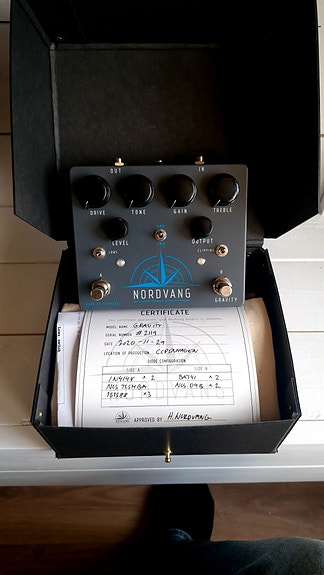 OUT IN
DRIVE TONE GAIN TREBLE
LEVEL OUTPUT
LOWS CLIPPING
A B
NORDVANG
MADE IN DENMARK GRAVITY
CERTIFICATE
MODEL NAME GRAVITY
SERIAL NUMBER # 2119
DATE 2020-11-24
LOCATION OF PRODUCTION COPENHAGEN
DIODE CONFIGURATION
SIDE A SIDE B
1N4148 ^ 2 BAT41 ^ 2
NOS TESHIBA NOS D9B ^ 2
^3
APPROVED BY H. NORDVANG